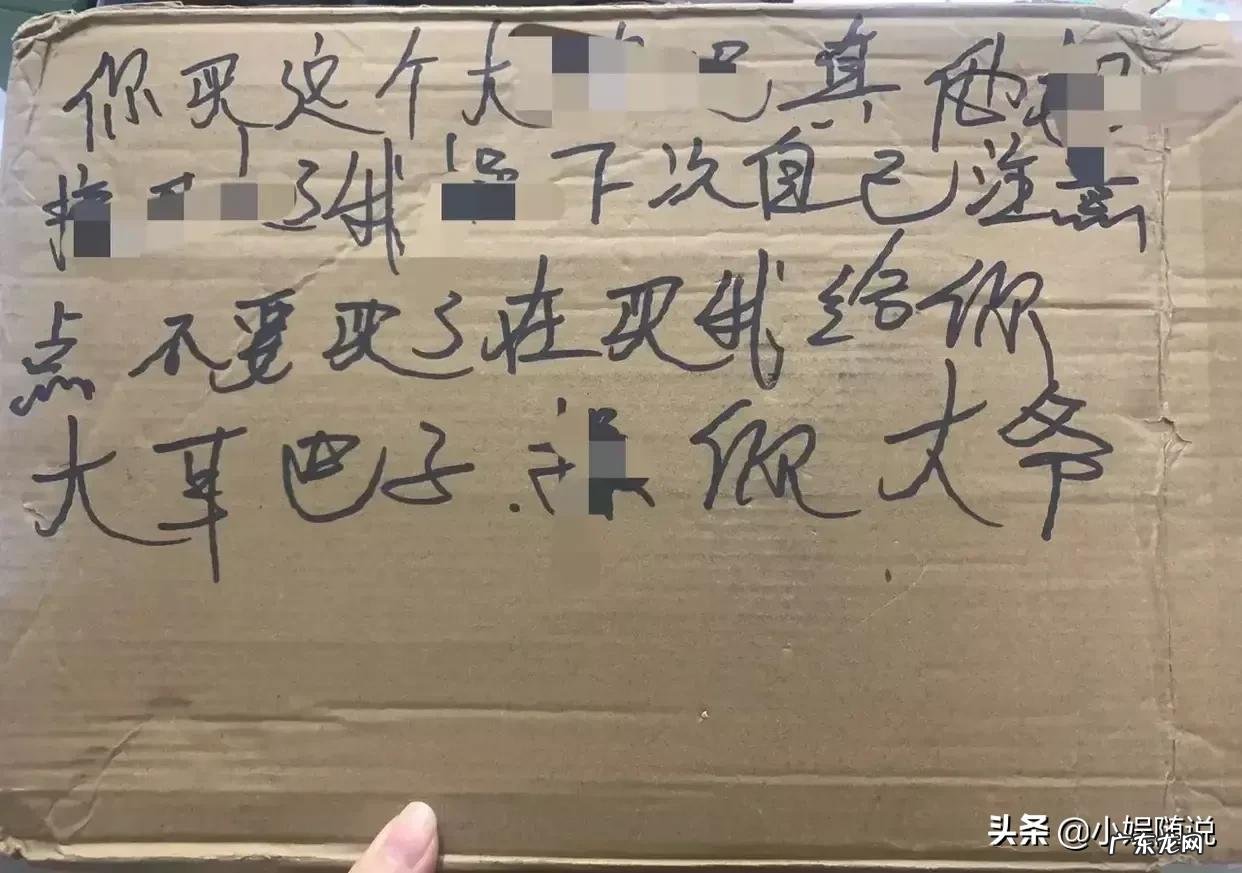 你买这个大 真他
了我 下次自己注意
点不要买了在买我给你
大耳巴子. 你大爷
头条 @小娱随说
广东龙网